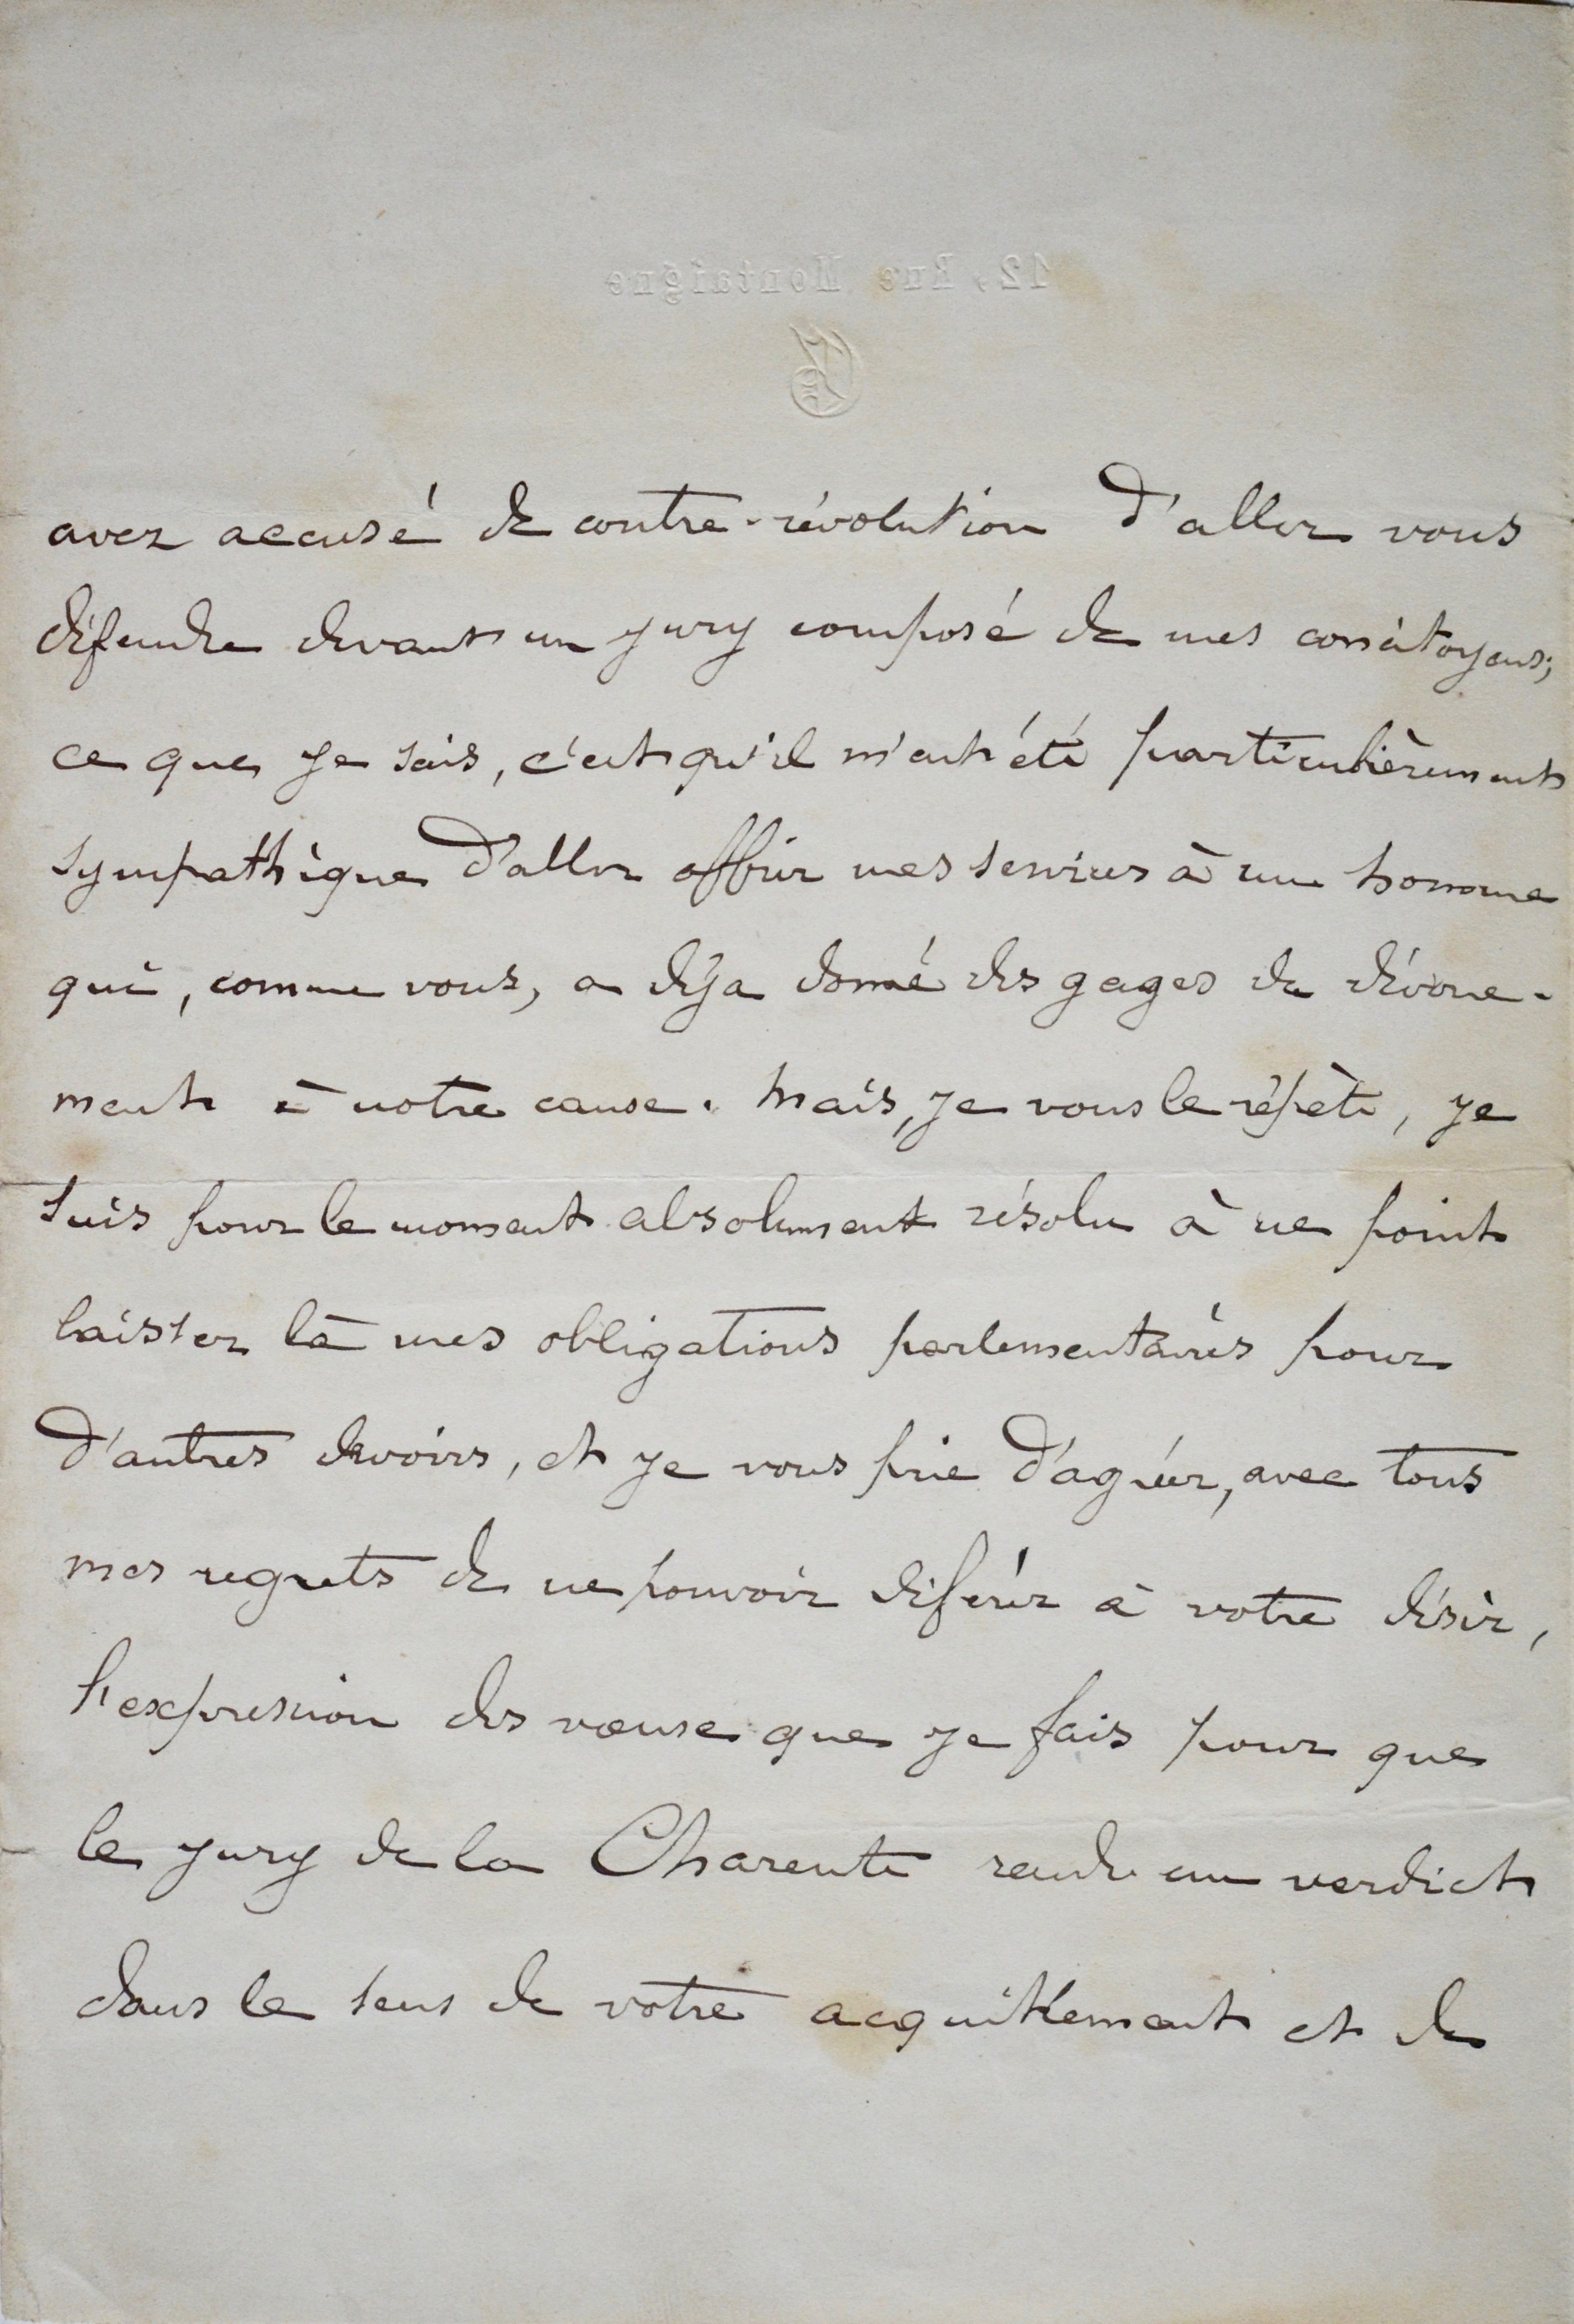 12, Rue Montaigne
avez accusé de contre-révolution d'aller vous
défendre devant un jury composé de mes concitoyens;
ce que je sais, c'est qu'il m'eut été particulièrement
sympathique d'aller offrir mes services à un homme
qui, comme vous, a déja donné des gages de dévoue-
ment à notre cause. Mais, je vous le répète, je
suis pour le moment absolument résolu à ne point
laisser là mes obligations parlementaires pour
d'autres devoirs, et je vous prie d'agréer, avec tous
mes regrets de ne pouvoir déférer à votre désir,
l'expression des vœux que je fais pour que
le jury de la Charente rende un verdict
dans le sens de votre acquittement et de